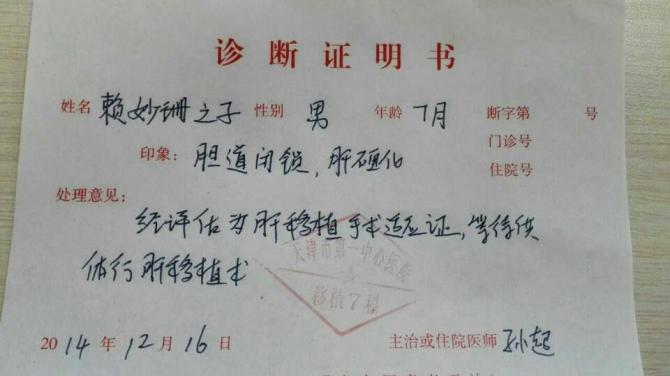 诊断证明书
姓名 赖妙珊之子 性别 男 年龄 7月 断字第 号
门诊号
印象: 胆道闭锁,肝硬化 住院号
处理意见:
经评估为肝移植手术适应证,等待供
体行肝移植术
天津市第一中心医院
移植7科
2014年12月16日 主治或住院医师 孙起